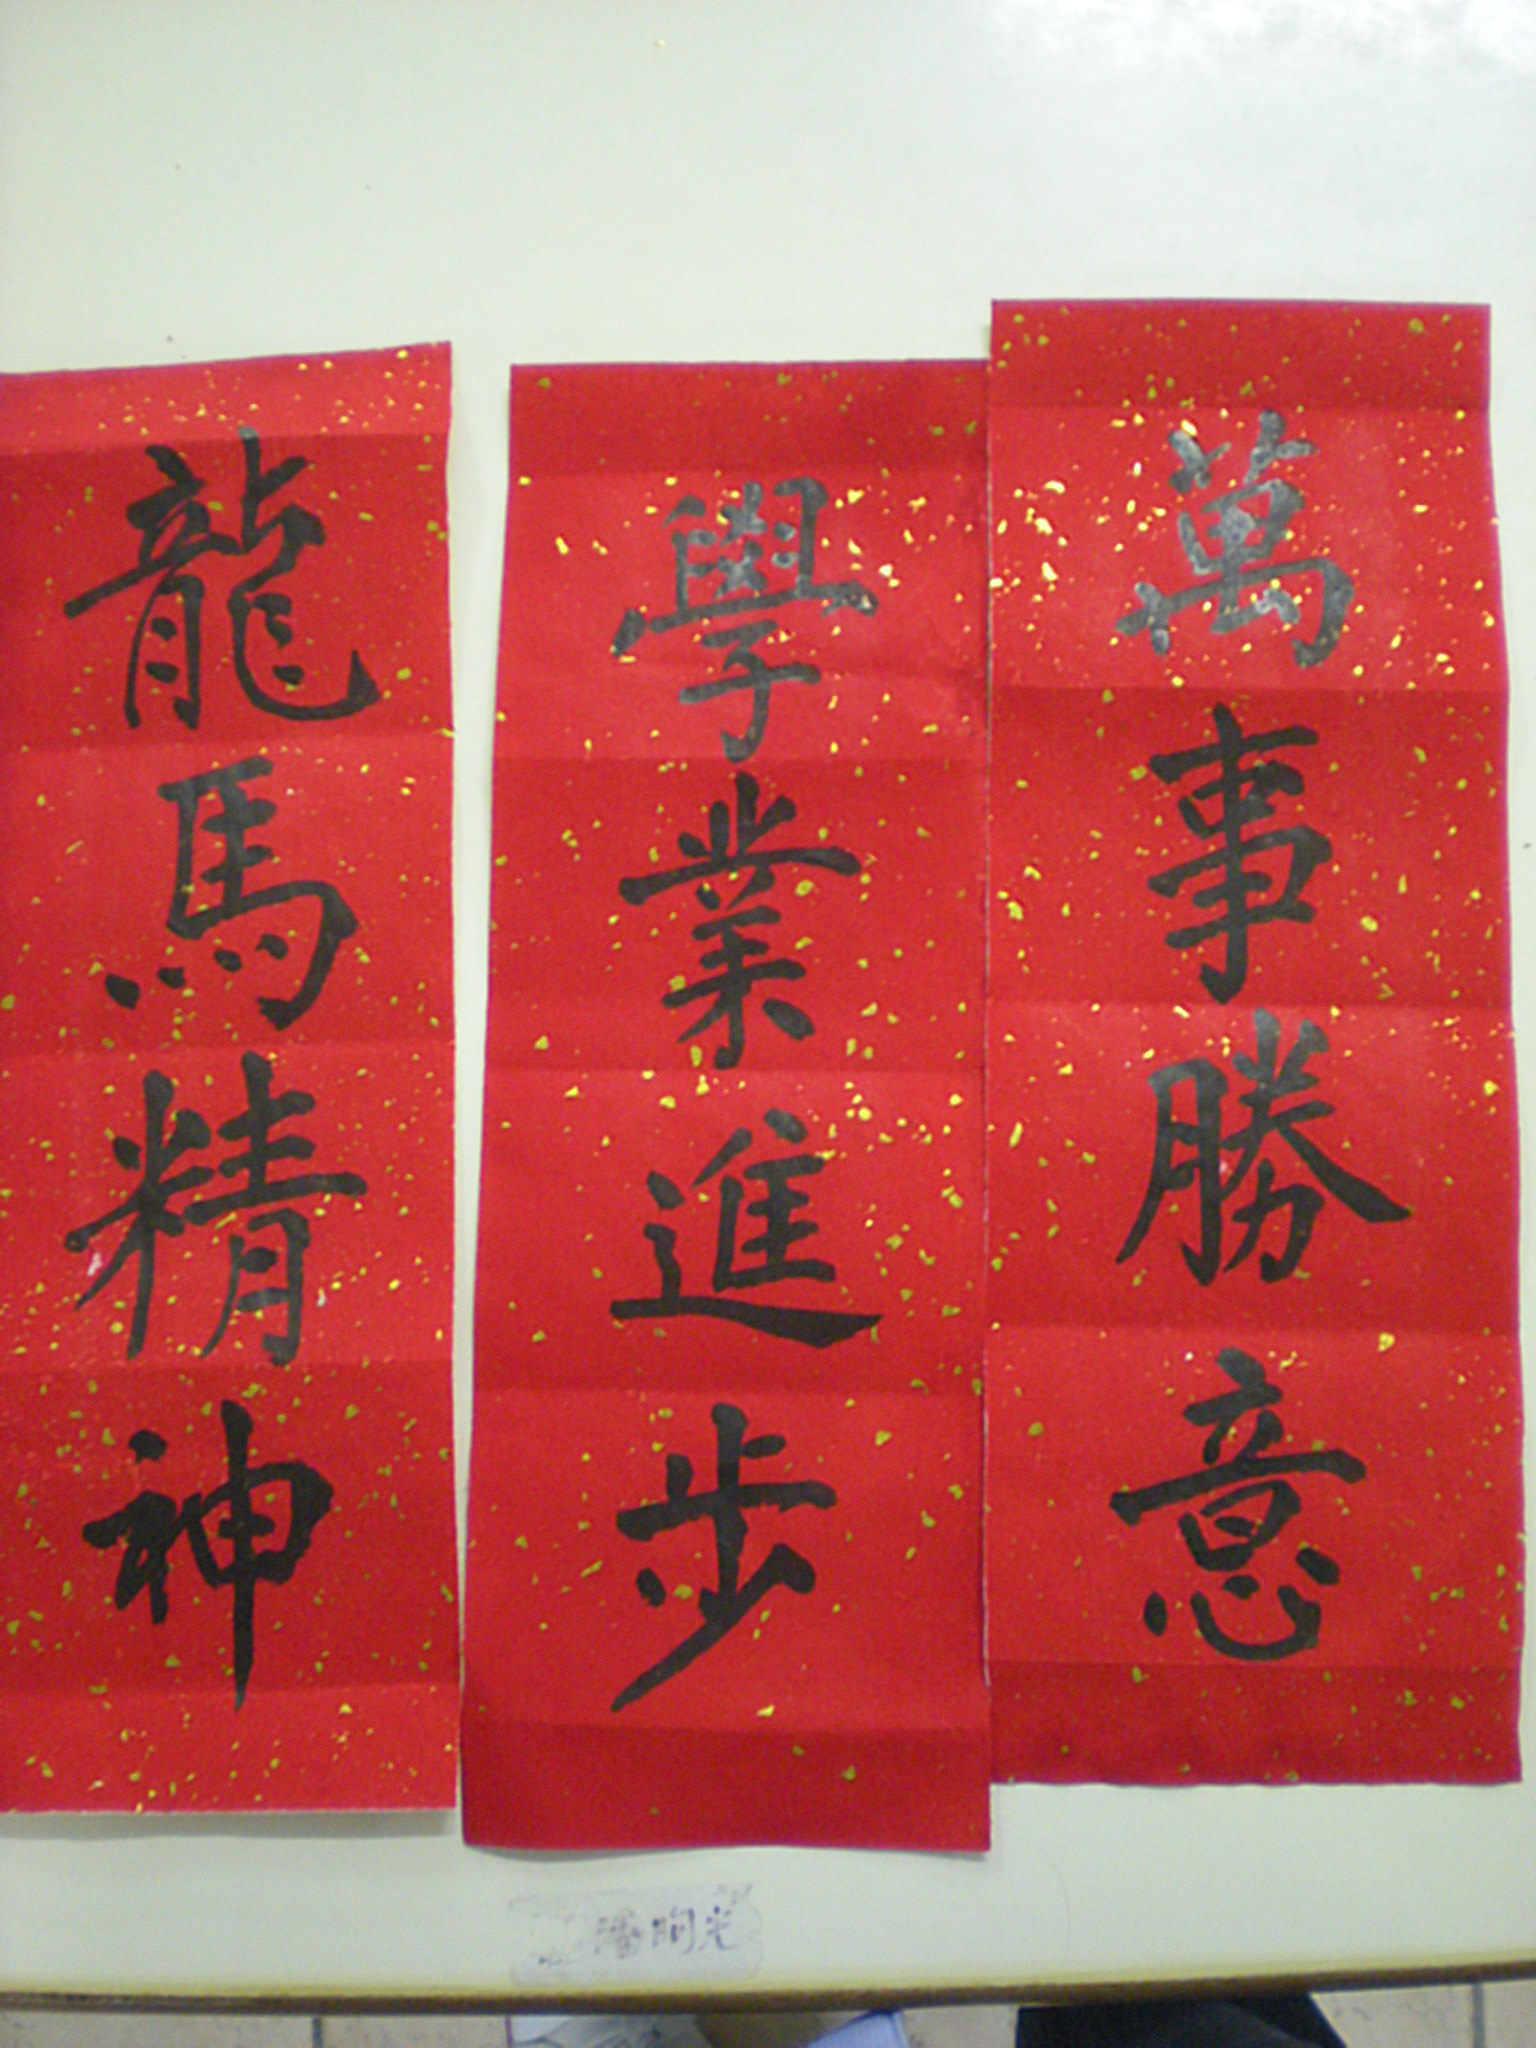 萬事勝意
學業進步
龍馬精神
潘昫光